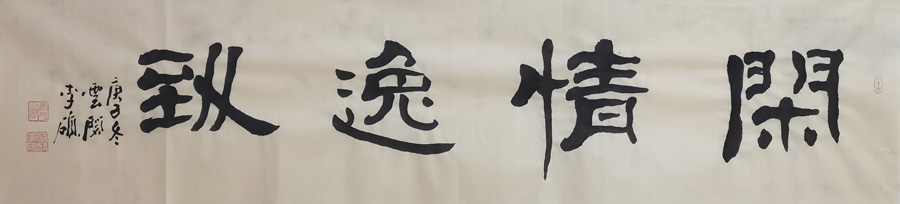 閑情逸致
庚子冬
雲閣
李碩